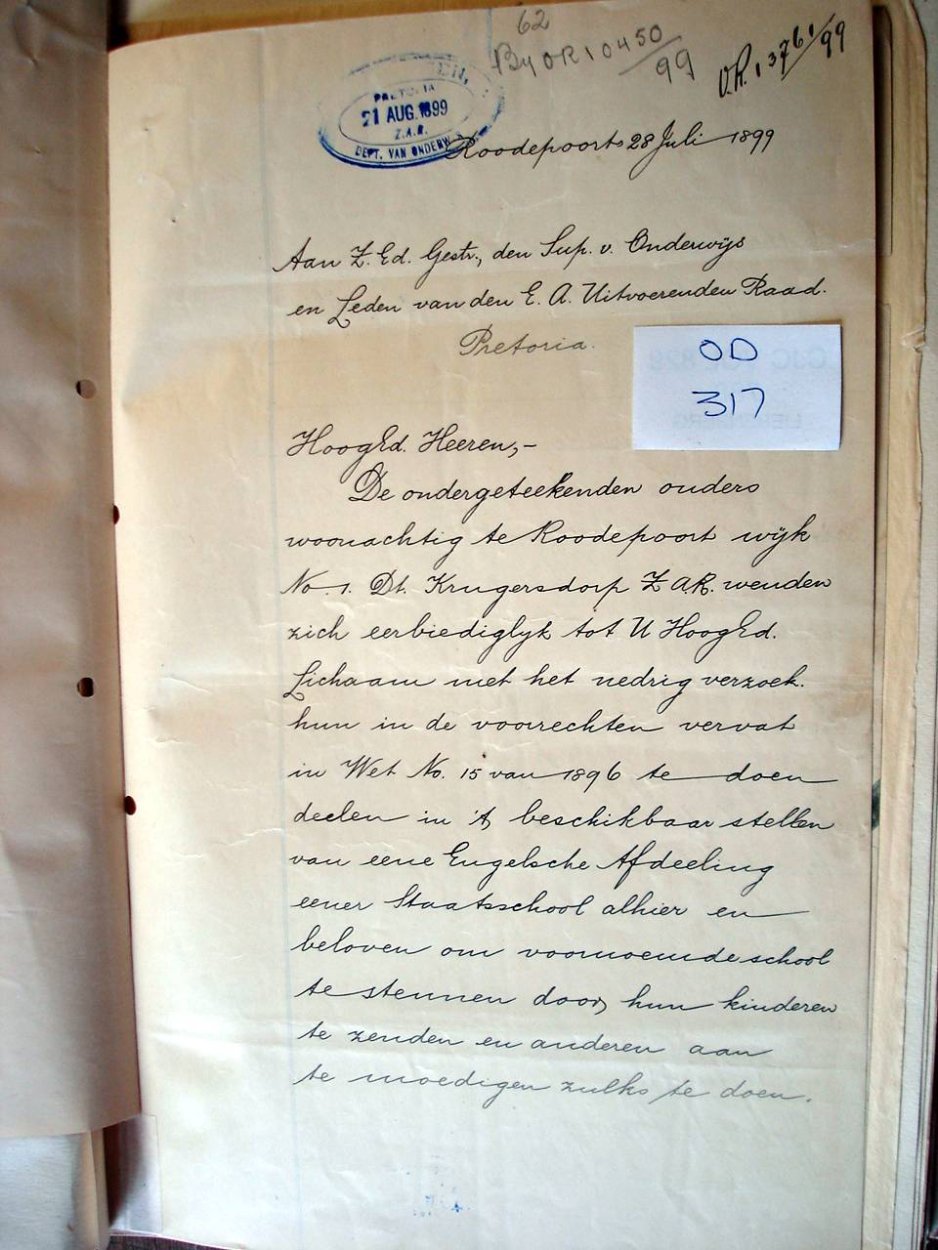 62
By OR 10450/99
O.R. 13761/99
PRETORIA
21 AUG. 1899
Z.A.R.
DEPT. VAN ONDERW
Roodepoort 28 Juli 1899
Aan Z. Ed. Gestr., den Sup. v. Onderwijs
en Leden van den E. A. Uitvoerenden Raad.
Pretoria.
OD
317
HoogEd. Heeren,-
De ondergeteekenden ouders
woonachtig te Roodepoort wijk
No. 1. Dt. Krugersdorp Z.A.R. wenden
zich eerbiediglyk tot U HoogEd.
Lichaam met het nedrig verzoek.
hun in de voorrechten vervat
in Wet No. 15 van 1896 te doen
deelen in 't beschikbaar stellen
van eene Engelsche Afdeeling
eener Staatsschool alhier en
beloven om voornoemde school
te steunen door, hun kinderen
te zenden en anderen aan
te moedigen zulks te doen.